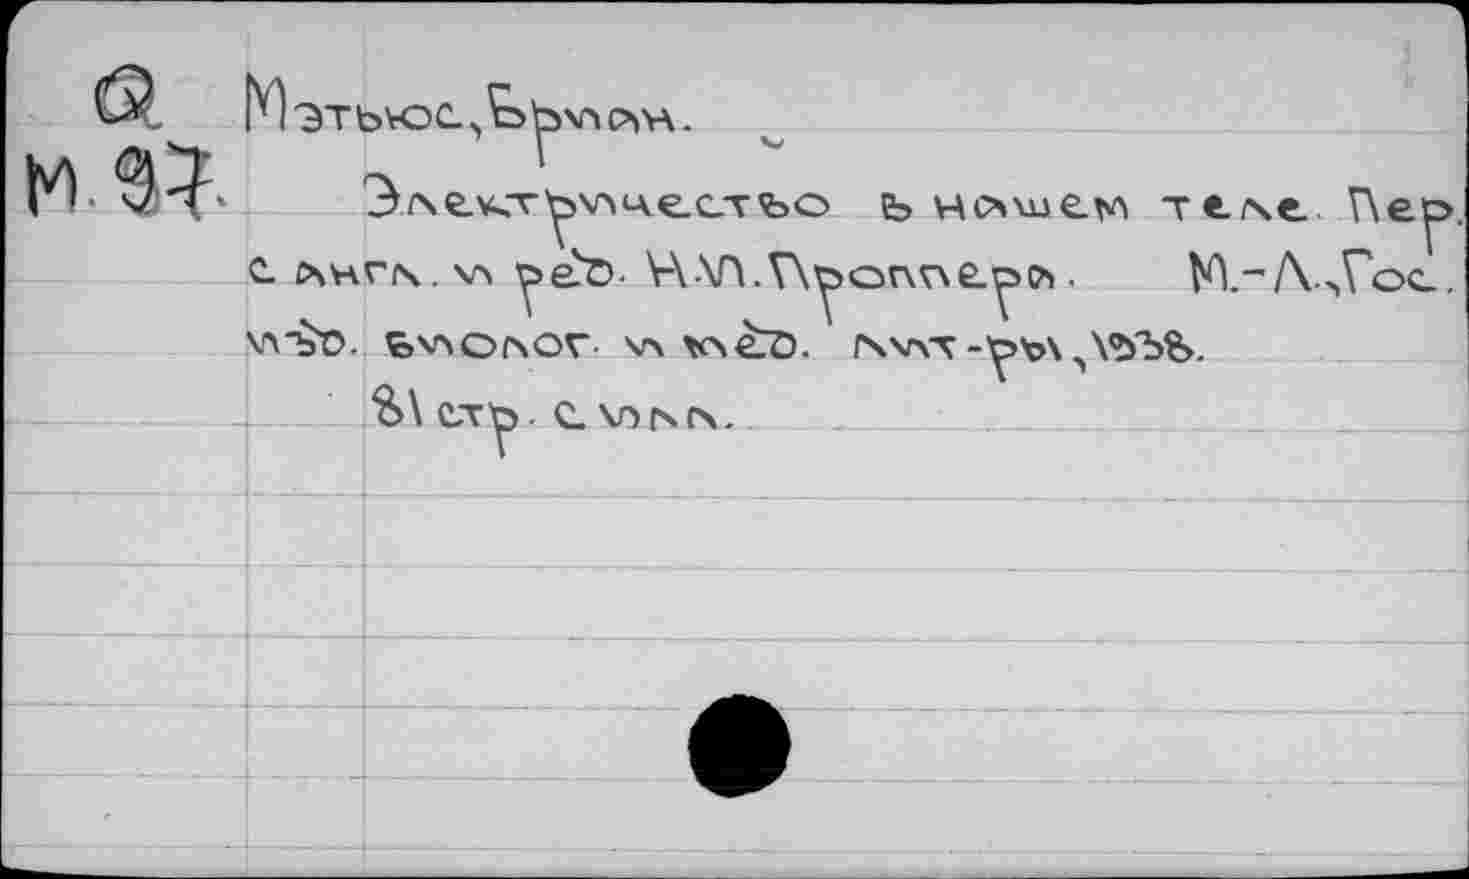 Q Мэтьюс, Бриан.
М.97. Электричество в нашем теле. Пер.
с англ. и ред. Н.И.Проппера. М.-Л.,Гос.
изд. биолог. и мед. лит-ры, 1938.
81 стр. с илл.